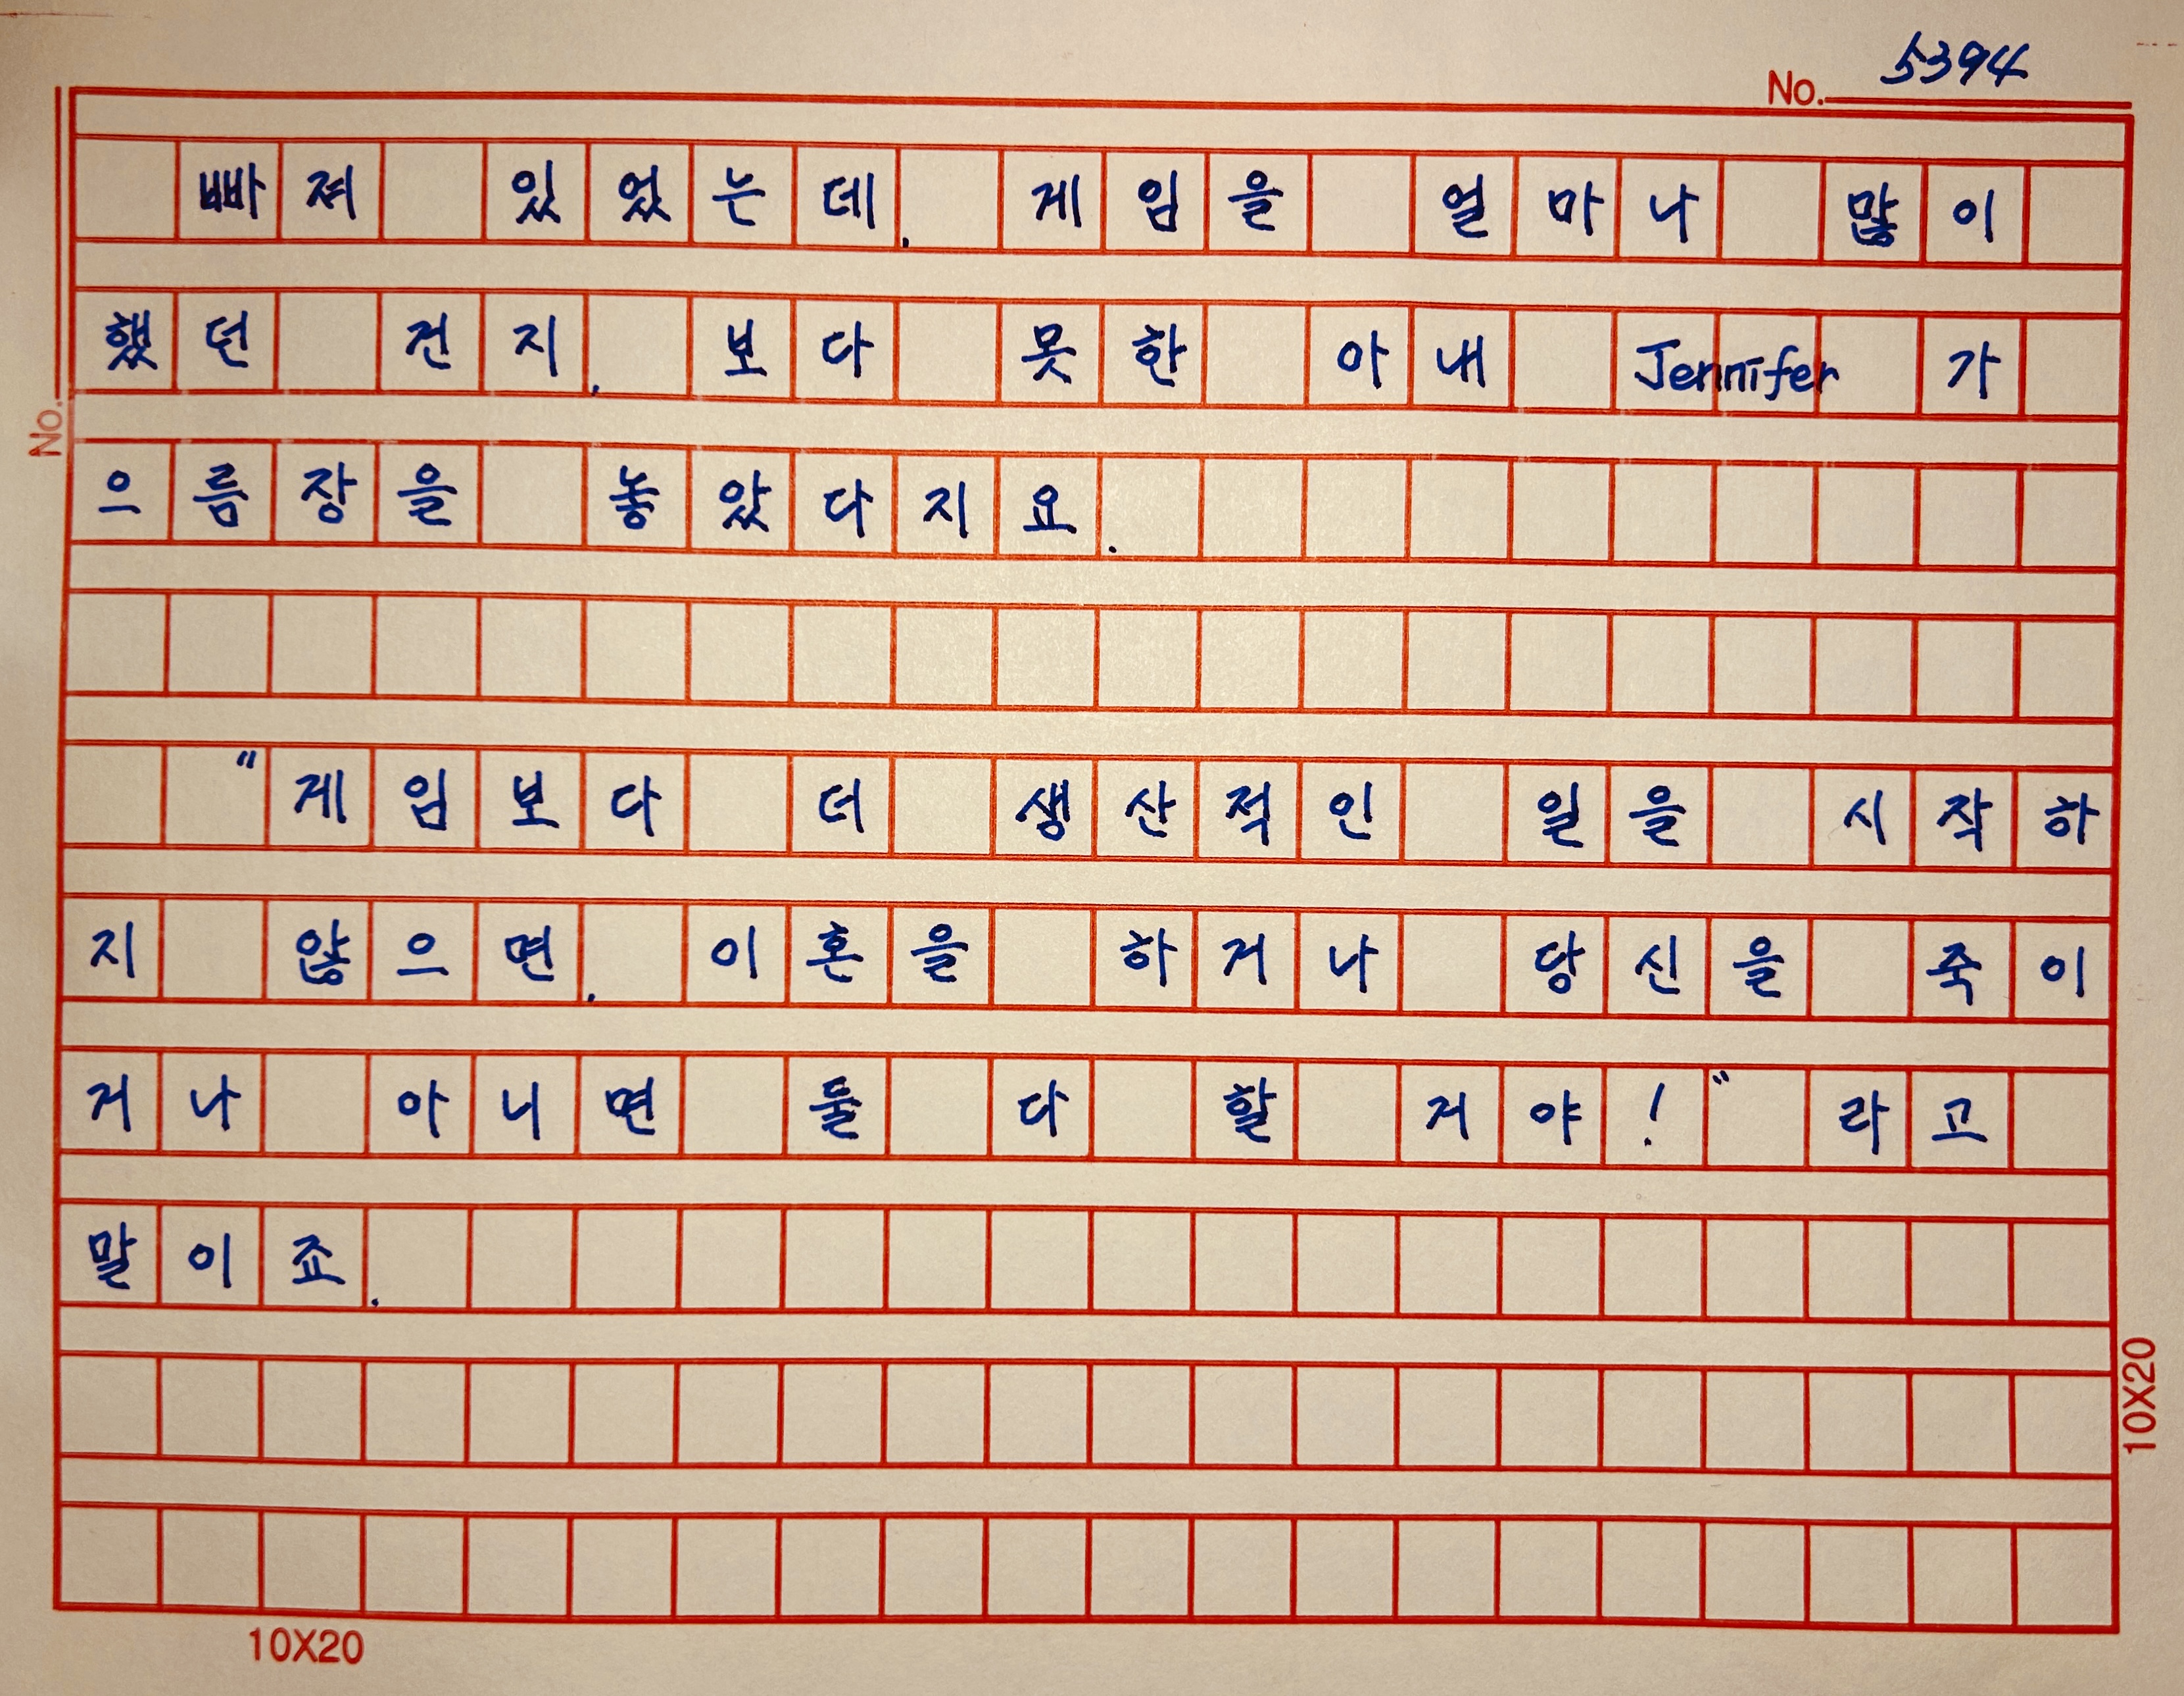 No. 5394
빠져 있었는데. 게임을 얼마나 많이
했던 건지. 보다 못한 아내 Jennifer 가
No.
으름장을 놓았다지요.
"게임보다 더 생산적인 일을 시작하
지 않으면. 이혼을 하거나 당신을 죽이
거나 아니면 둘 다 할 거야!" 라고
말이죠.
10X20
10X20